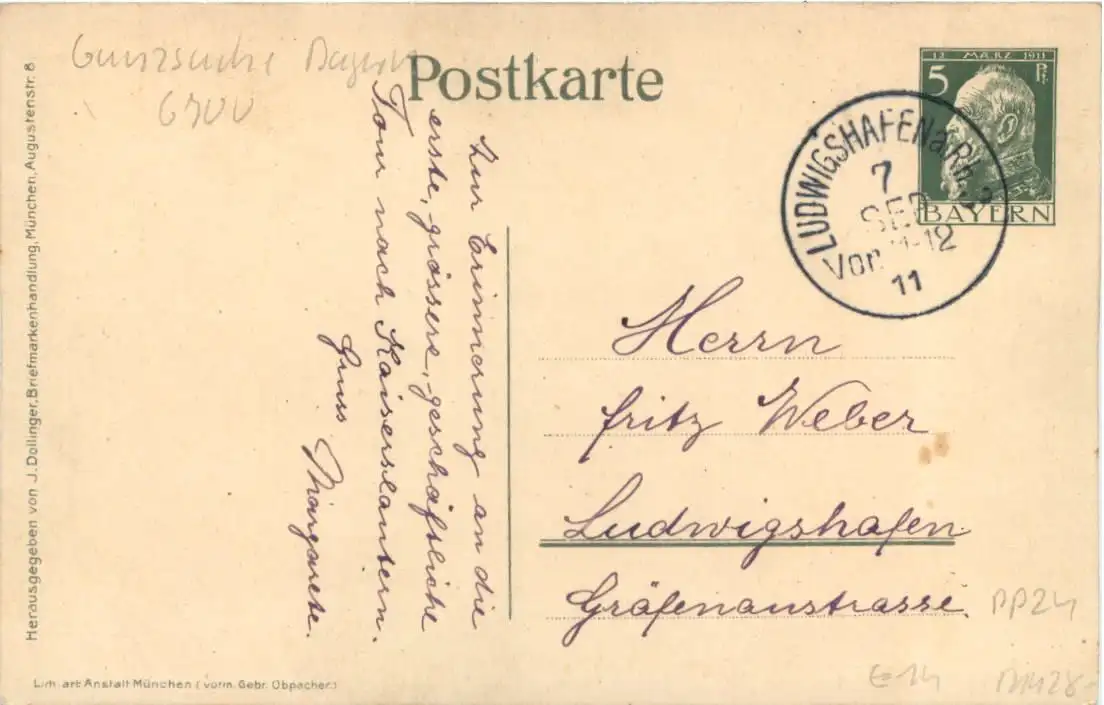 Ganzsache Bayern
Postkarte
12 MÄRZ 1911
5 Pf.
BAYERN
LUDWIGSHAFEN a. Rh. 2
7
SEP
Vor. 11-12
11
Zur Erinnerung an die
erste, grössere, geschäftliche
Tour nach Kaiserslautern.
Gruss Margarete.
Herrn
Fritz Weber
Ludwigshafen
Gräfenaustrasse.
PP24
E-14
Herausgegeben von J. Dollinger, Briefmarkenhandlung, München, Augustenstr. 8
Lith. art. Anstalt München (vorm. Gebr. Obpacher.)